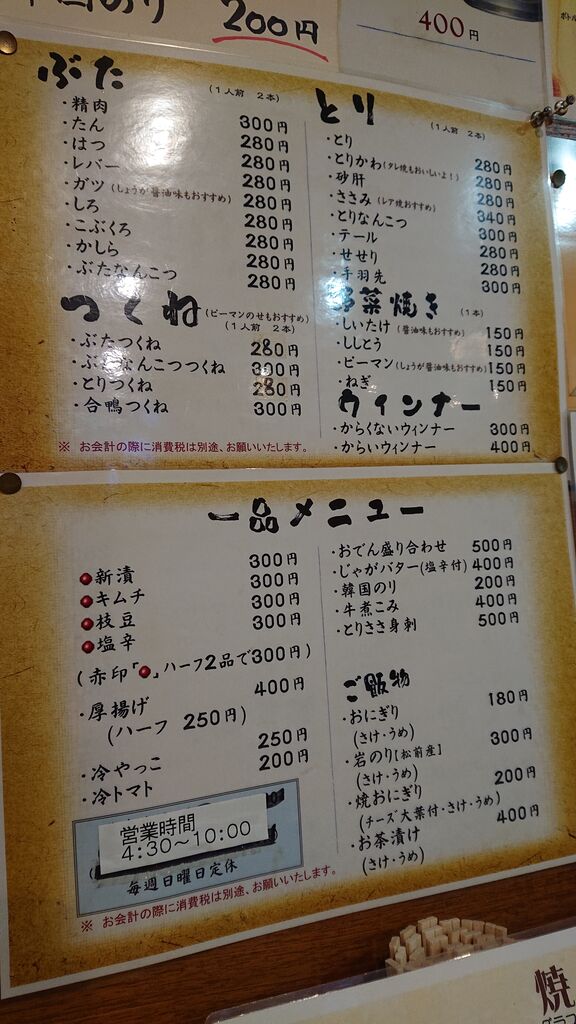 のり 200円
400円
ぶた (1人前 2本)
・精肉 300円
・たん 280円
・はつ 280円
・レバー 280円
・ガツ(しょうが醤油味もおすすめ) 280円
・しろ 280円
・こぶくろ 280円
・かしら 280円
・ぶたなんこつ 280円
つくね (ピーマンのせもおすすめ)
(1人前 2本)
・ぶたつくね 280円
・ぶたなんこつつくね 300円
・とりつくね 280円
・合鴨つくね 300円
※ お会計の際に消費税は別途、お願いいたします。
とり (1人前 2本)
・とり 280円
・とりかわ(タレ焼もおいしいよ!) 280円
・砂肝 280円
・ささみ(レア焼おすすめ) 340円
・とりなんこつ 300円
・テール 280円
・せせり 280円
・手羽先 300円
野菜焼き (1本)
・しいたけ(醤油味もおすすめ) 150円
・ししとう 150円
・ピーマン(しょうが醤油味もおすすめ) 150円
・ねぎ 150円
ウィンナー
・からくないウィンナー 300円
・からいウィンナー 400円
一品メニュー
新漬 300円
キムチ 300円
枝豆 300円
塩辛 300円
(赤印「●」ハーフ2品で300円)
・厚揚げ 400円
(ハーフ 250円)
・冷やっこ 250円
・冷トマト 200円
営業時間
4:30～10:00
毎週日曜日定休
※ お会計の際に消費税は別途、お願いいたします。
・おでん盛り合わせ 500円
・じゃがバター(塩辛付) 400円
・韓国のり 200円
・牛煮こみ 400円
・とりささ身刺 500円
ご飯物
・おにぎり 180円
(さけ・うめ)
・岩のり[松前産] 300円
(さけ・うめ)
・焼おにぎり 200円
(チーズ大葉付・さけ・うめ)
・お茶漬け 400円
(さけ・うめ)
焼
グラス